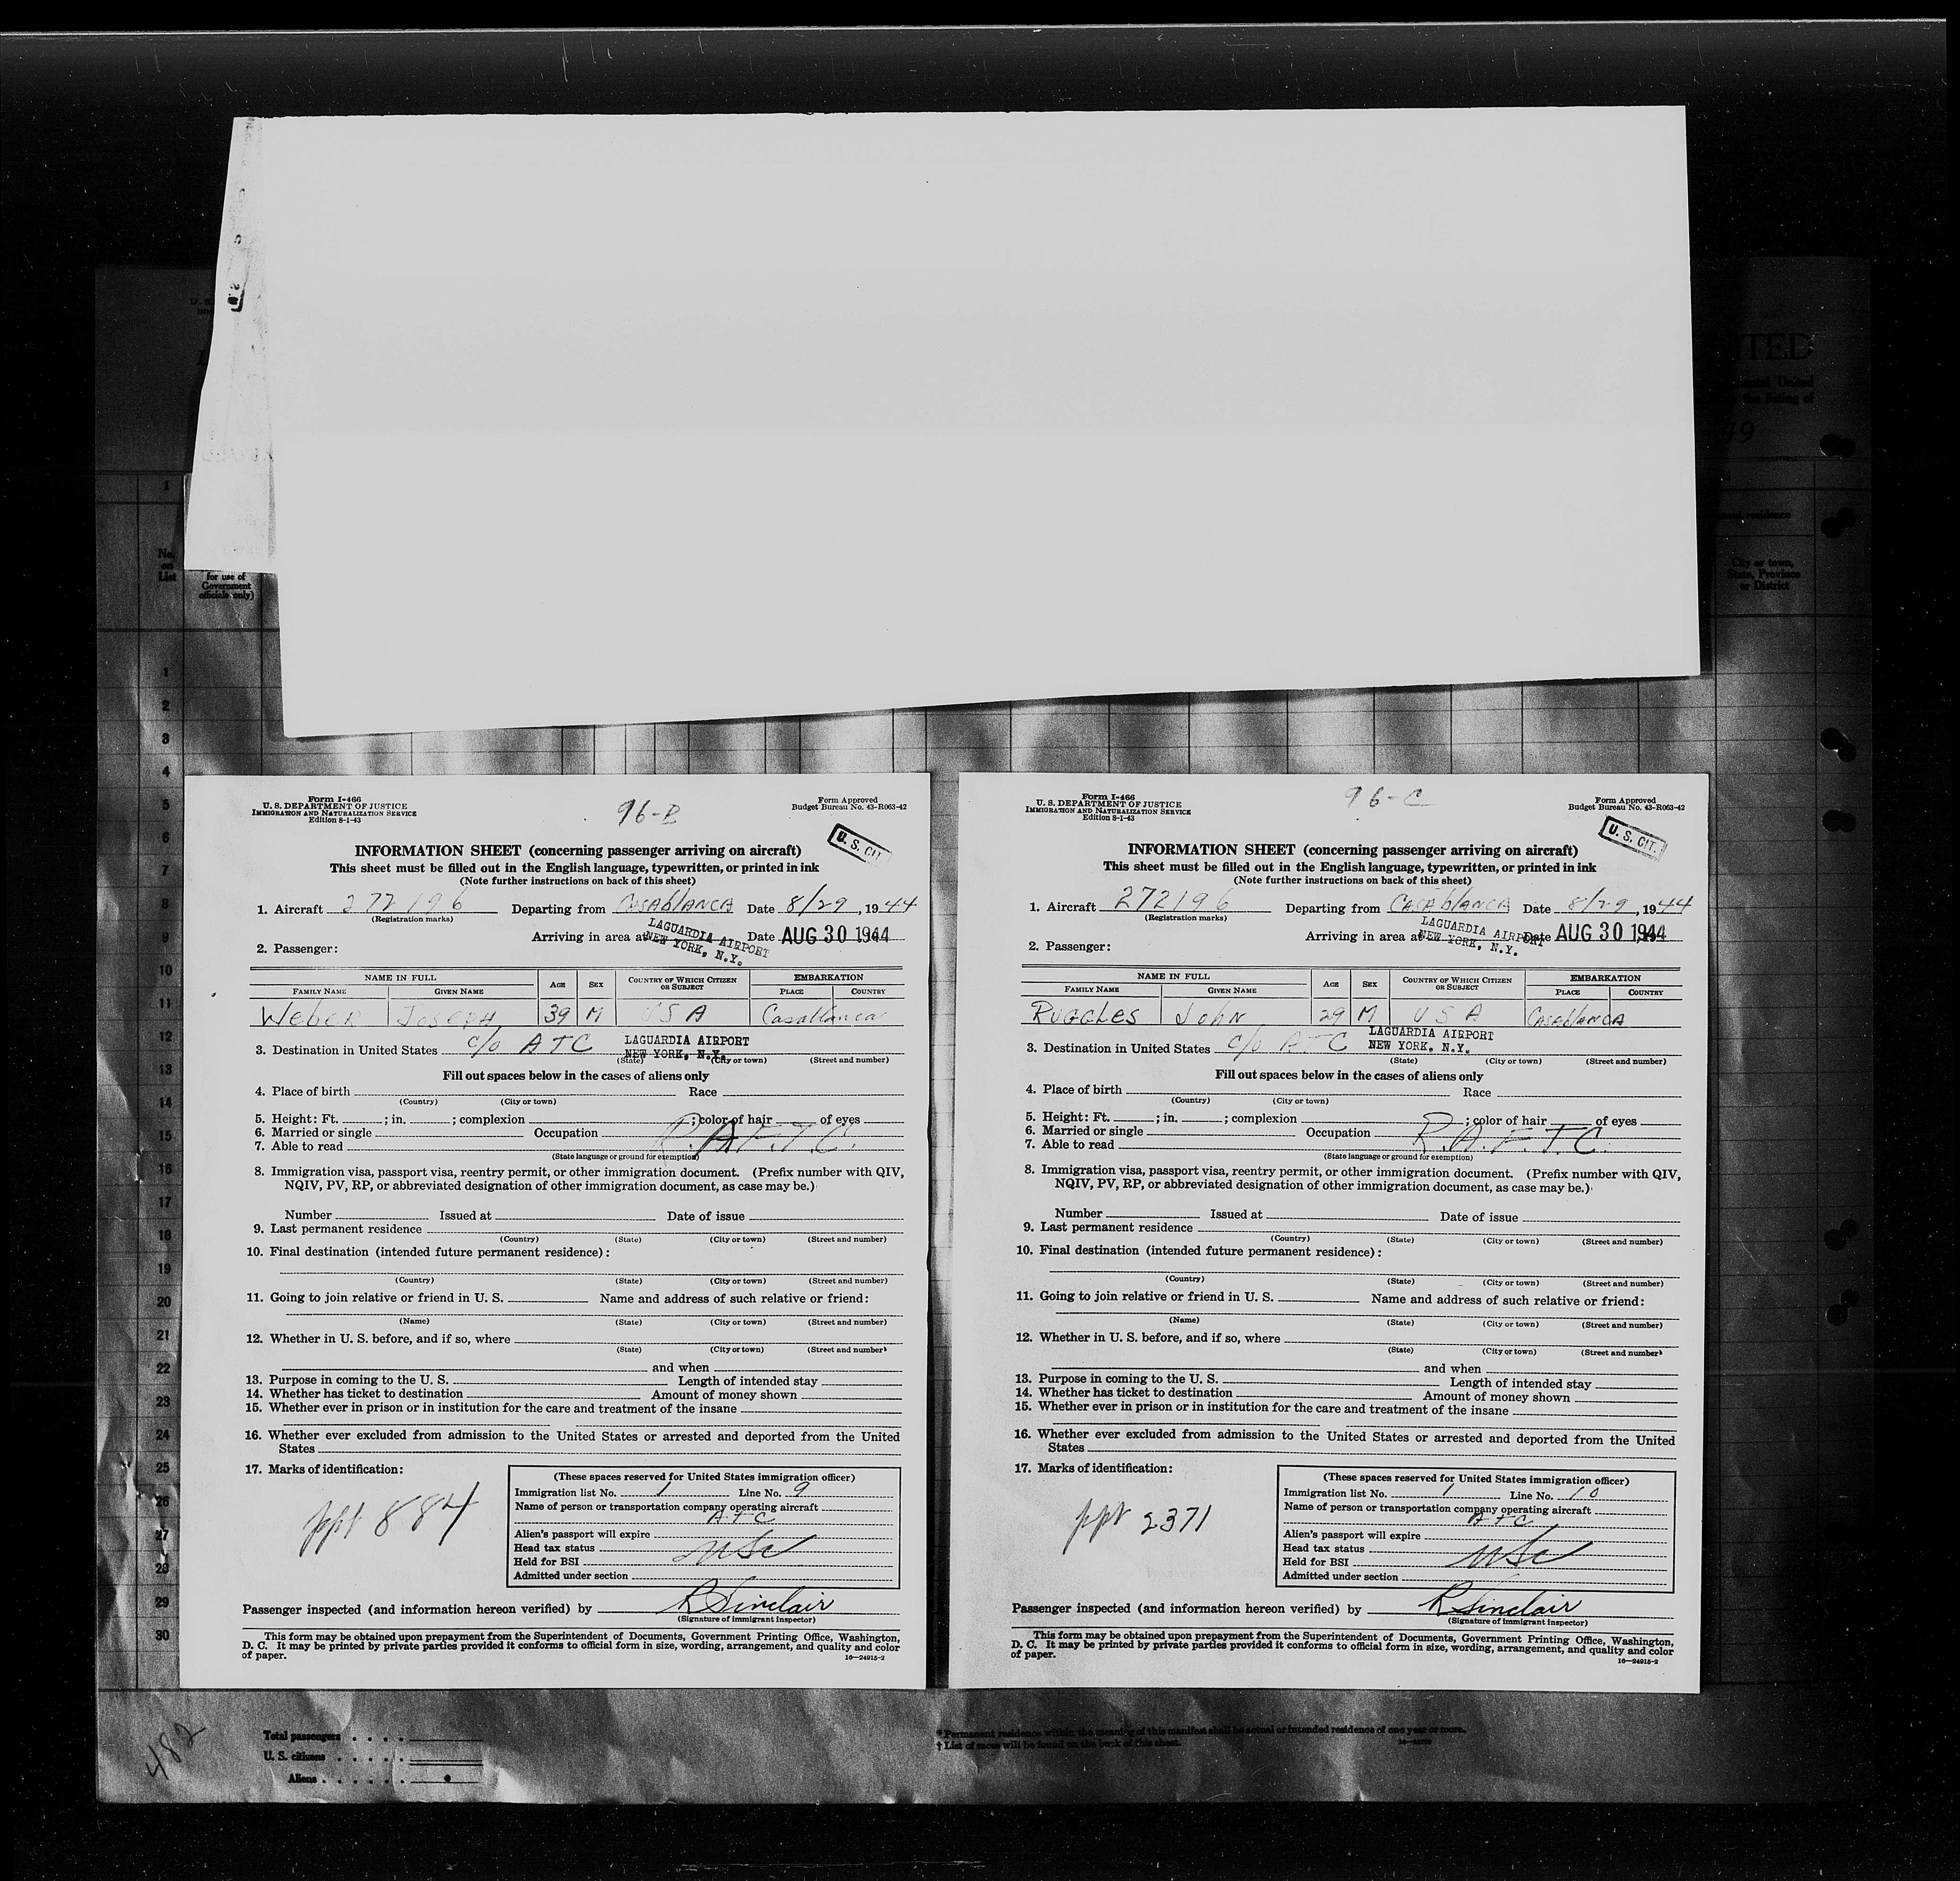 U. S.
ITED
ental United
the listing of
19
1
No.
on
List
for use of
Government
officials only)
residence
City or town,
State, Province
or District
1
2
3
4
5
6
7
8
9
10
11
12
13
14
15
16
17
18
19
20
21
22
23
24
25
26
27
28
29
30
Form I-466
U. S. DEPARTMENT OF JUSTICE
IMMIGRATION AND NATURALIZATION SERVICE
Edition 8-1-43
96-B
Form Approved
Budget Bureau No. 43-R063-42
U. S. CIT.
INFORMATION SHEET (concerning passenger arriving on aircraft)
This sheet must be filled out in the English language, typewritten, or printed in ink
(Note further instructions on back of this sheet)
1. Aircraft 272196 Departing from CASAblANCA Date 8/29, 1944
(Registration marks)
Arriving in area at LAGUARDIA AIRPORT NEW YORK, N.Y. Date AUG 30 1944
2. Passenger:
NAME IN FULL AGE SEX COUNTRY OF WHICH CITIZEN OR SUBJECT EMBARKATION
FAMILY NAME GIVEN NAME PLACE COUNTRY
WEBER JOSEPH 39 M USA Casablanca
3. Destination in United States c/o ATC LAGUARDIA AIRPORT
NEW YORK, N.Y.
(State) (City or town) (Street and number)
Fill out spaces below in the cases of aliens only
4. Place of birth Race
(Country) (City or town)
5. Height: Ft. ; in. ; complexion ; color of hair of eyes
6. Married or single Occupation R.A.F.T.C.
7. Able to read
(State language or ground for exemption)
8. Immigration visa, passport visa, reentry permit, or other immigration document. (Prefix number with QIV,
NQIV, PV, RP, or abbreviated designation of other immigration document, as case may be.)
Number Issued at Date of issue
9. Last permanent residence
(Country) (State) (City or town) (Street and number)
10. Final destination (intended future permanent residence):
(Country) (State) (City or town) (Street and number)
11. Going to join relative or friend in U. S. Name and address of such relative or friend:
(Name) (State) (City or town) (Street and number)
12. Whether in U. S. before, and if so, where
(State) (City or town) (Street and number)
and when
13. Purpose in coming to the U. S. Length of intended stay
14. Whether has ticket to destination Amount of money shown
15. Whether ever in prison or in institution for the care and treatment of the insane
16. Whether ever excluded from admission to the United States or arrested and deported from the United
States
17. Marks of identification:
ppt 884
(These spaces reserved for United States immigration officer)
Immigration list No. 1 Line No. 9
Name of person or transportation company operating aircraft
ATC
Alien's passport will expire
Head tax status USC
Held for BSI
Admitted under section
Passenger inspected (and information hereon verified) by R Sinclair
(Signature of immigrant inspector)
This form may be obtained upon prepayment from the Superintendent of Documents, Government Printing Office, Washington,
D. C. It may be printed by private parties provided it conforms to official form in size, wording, arrangement, and quality and color
of paper.
16—24915-2
Form I-466
U. S. DEPARTMENT OF JUSTICE
IMMIGRATION AND NATURALIZATION SERVICE
Edition 8-1-43
96-C
Form Approved
Budget Bureau No. 43-R063-42
U. S. CIT.
INFORMATION SHEET (concerning passenger arriving on aircraft)
This sheet must be filled out in the English language, typewritten, or printed in ink
(Note further instructions on back of this sheet)
1. Aircraft 272196 Departing from CASAblANCA Date 8/29, 1944
(Registration marks)
Arriving in area at LAGUARDIA AIRPORT NEW YORK, N.Y. Date AUG 30 1944
2. Passenger:
NAME IN FULL AGE SEX COUNTRY OF WHICH CITIZEN OR SUBJECT EMBARKATION
FAMILY NAME GIVEN NAME PLACE COUNTRY
RUGGLES JOHN 29 M USA CASAblANCA
3. Destination in United States c/o ATC LAGUARDIA AIRPORT
NEW YORK, N.Y.
(State) (City or town) (Street and number)
Fill out spaces below in the cases of aliens only
4. Place of birth Race
(Country) (City or town)
5. Height: Ft. ; in. ; complexion ; color of hair of eyes
6. Married or single Occupation R.A.F.T.C.
7. Able to read
(State language or ground for exemption)
8. Immigration visa, passport visa, reentry permit, or other immigration document. (Prefix number with QIV,
NQIV, PV, RP, or abbreviated designation of other immigration document, as case may be.)
Number Issued at Date of issue
9. Last permanent residence
(Country) (State) (City or town) (Street and number)
10. Final destination (intended future permanent residence):
(Country) (State) (City or town) (Street and number)
11. Going to join relative or friend in U. S. Name and address of such relative or friend:
(Name) (State) (City or town) (Street and number)
12. Whether in U. S. before, and if so, where
(State) (City or town) (Street and number)
and when
13. Purpose in coming to the U. S. Length of intended stay
14. Whether has ticket to destination Amount of money shown
15. Whether ever in prison or in institution for the care and treatment of the insane
16. Whether ever excluded from admission to the United States or arrested and deported from the United
States
17. Marks of identification:
ppt 2371
(These spaces reserved for United States immigration officer)
Immigration list No. 1 Line No. 10
Name of person or transportation company operating aircraft
ATC
Alien's passport will expire
Head tax status USC
Held for BSI
Admitted under section
Passenger inspected (and information hereon verified) by R Sinclair
(Signature of immigrant inspector)
This form may be obtained upon prepayment from the Superintendent of Documents, Government Printing Office, Washington,
D. C. It may be printed by private parties provided it conforms to official form in size, wording, arrangement, and quality and color
of paper.
16—24915-2
482
Total passengers
U. S. citizens
Aliens
*Permanent residence within the meaning of this manifest shall be actual or intended residence of one year or more.
†List of races will be found on the back of this sheet.